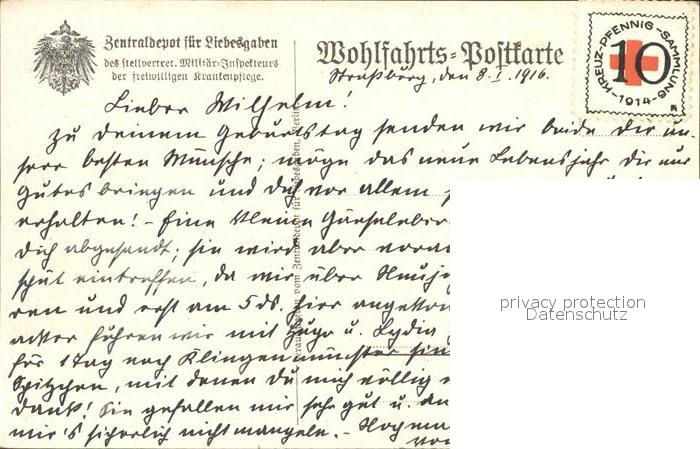 Zentraldepot für Liebesgaben
des stellvertret. Militär-Inspekteurs
der freiwilligen Krankenpflege.
Wohlfahrts-Postkarte
KREUZ-PFENNIG-SAMMLUNG
10
-1914-
Straßburg, den 8. I. 1916.
Lieber Wilhelm!
Zu deinem Geburtstag senden wir beide dir un-
sere besten Wünsche; möge das neue Lebensjahr dir nur
Gutes bringen und dich vor allem
erhalten! - Eine kleine Gänseleber
dich abgesandt; sie wird aber
spät eintreffen, da wir über Neuj
ren und erst am 5 ds. hier angekom
acker fuhren wir mit Hugo u. Lydia
für 1 Tag nach Klingenmünster
Spitzchen, mit denen Du mich völlig
dank! Sie gefallen mir sehr gut u. an
mir's sicherlich nicht mangeln. - Noch
vom Zentraldepot für Liebesgaben, Berlin
privacy protection
Datenschutz